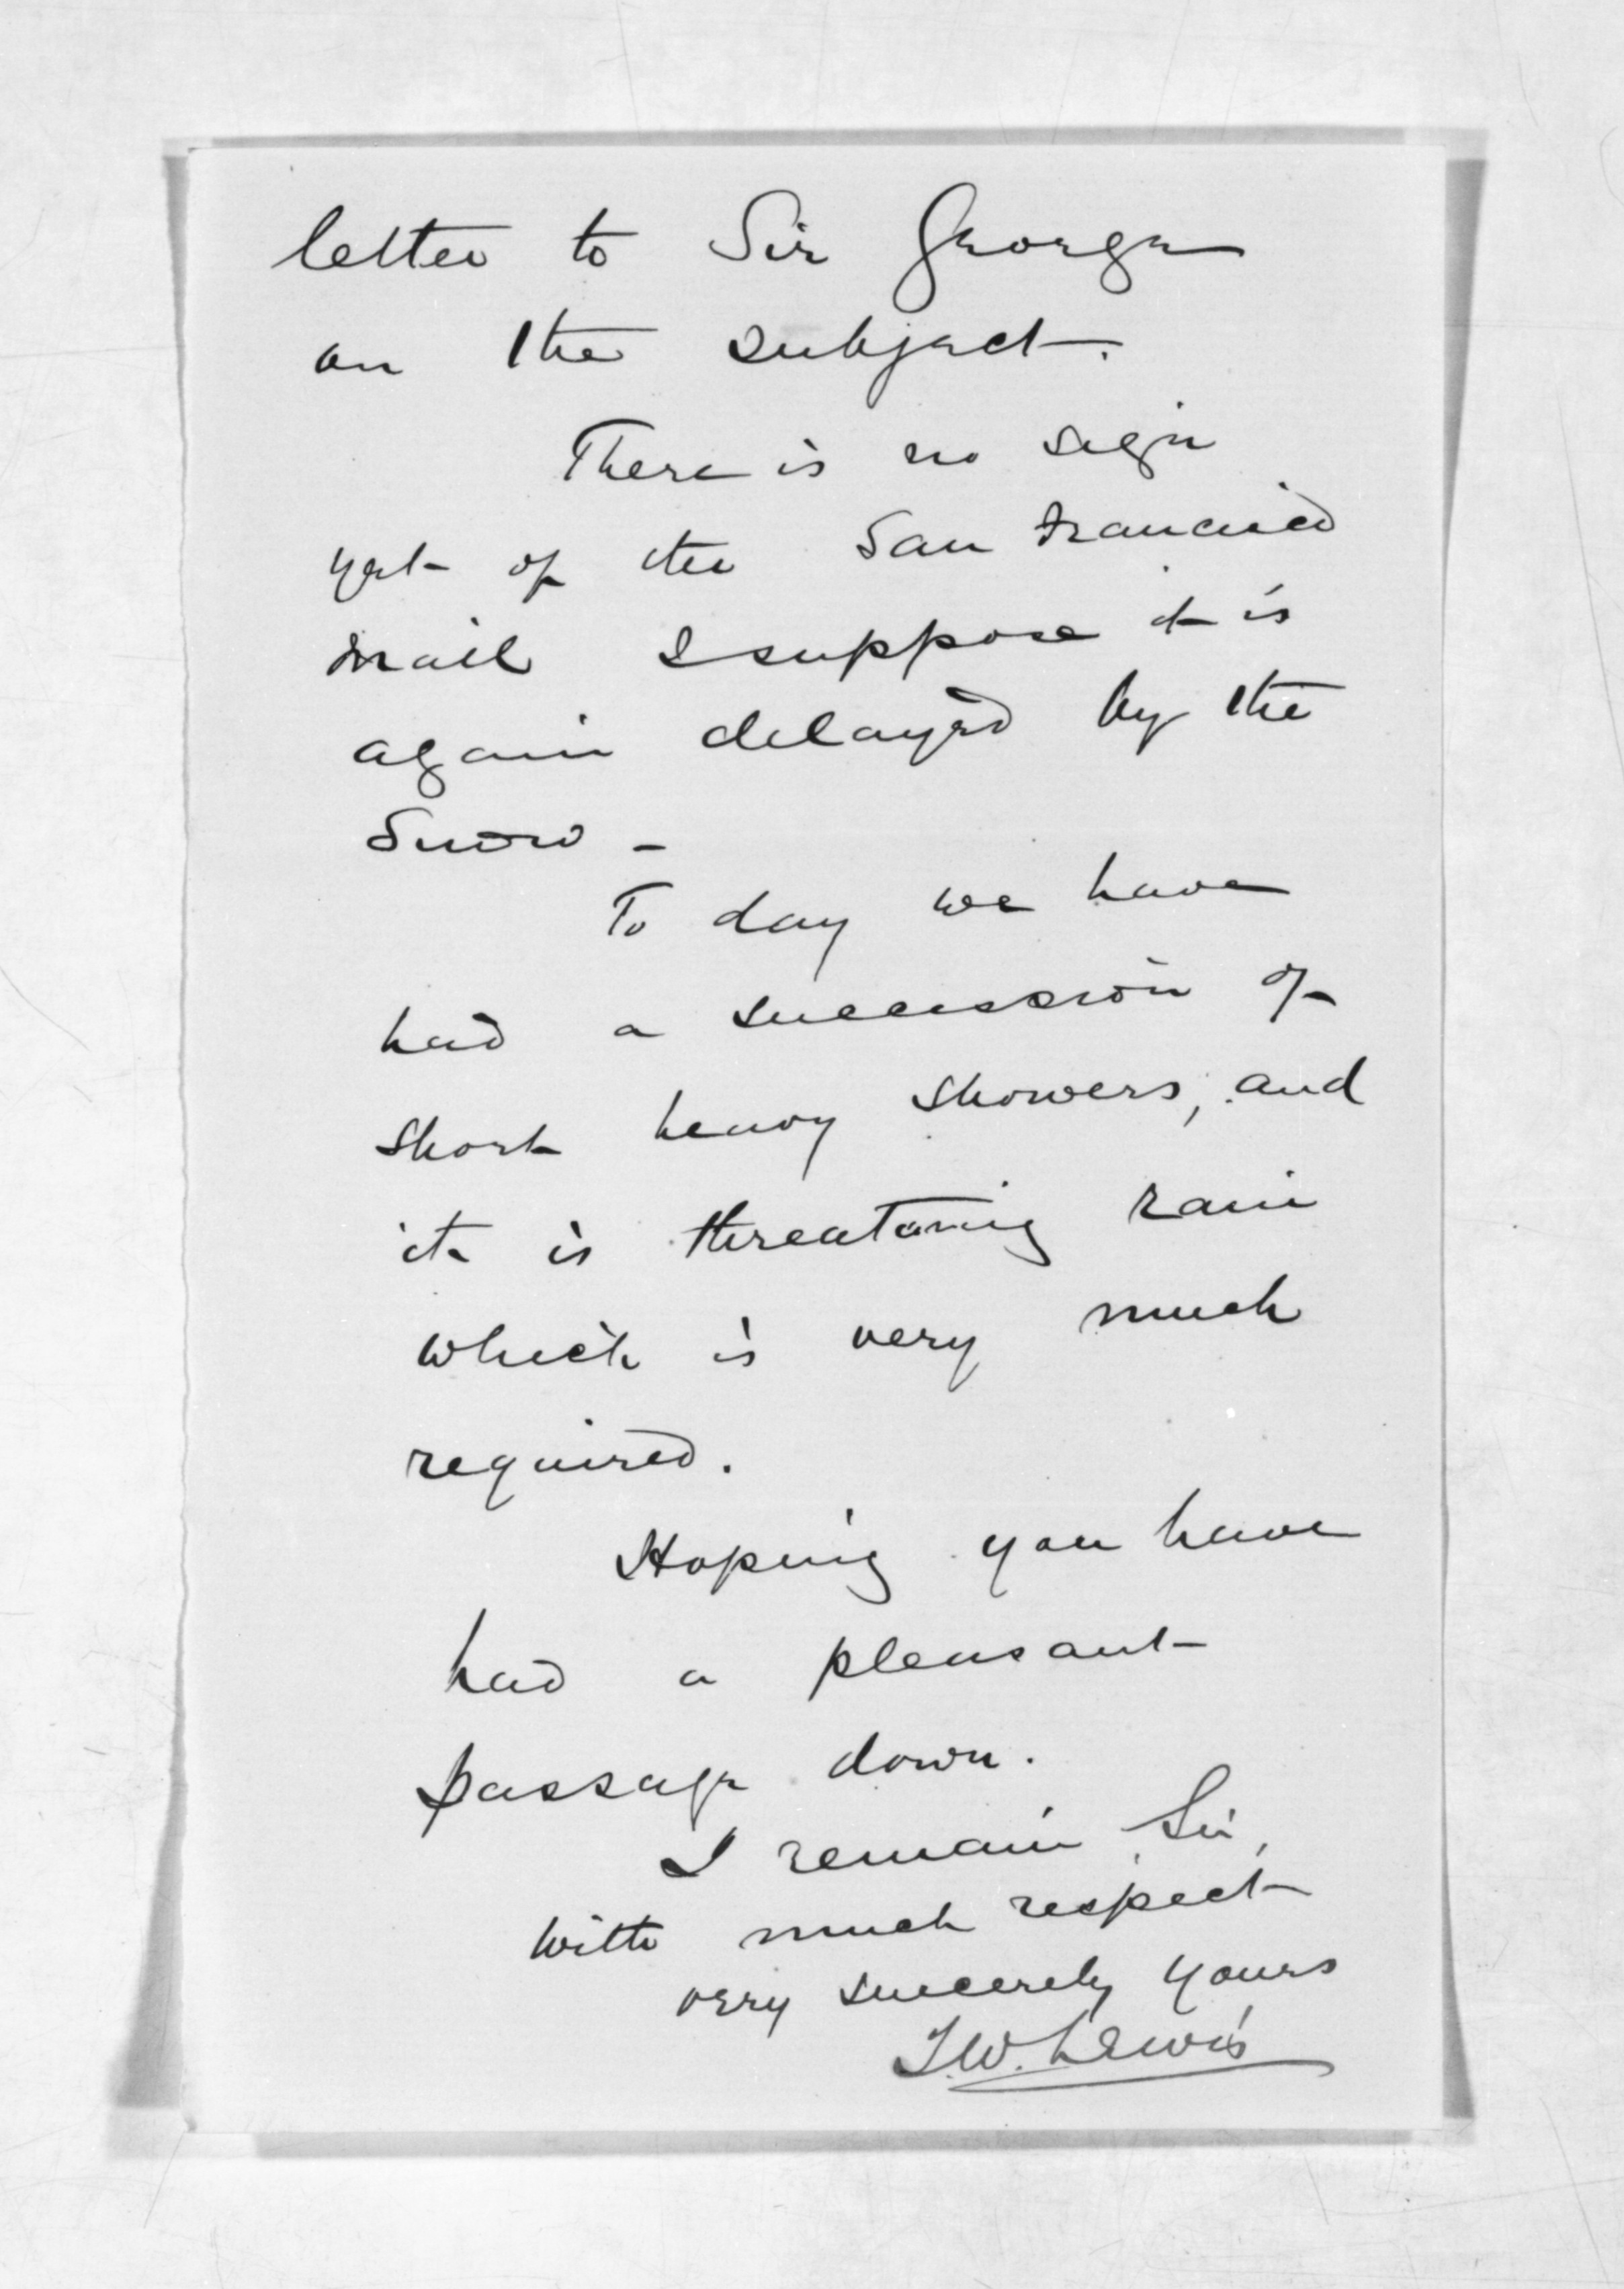 letter to Sir George
on the subject.
There is no sign
yet of the San Francisco
mail I suppose it is
again delayed by the
Snow -
To day we have
had a succession of
short heavy showers, and
it is threatening rain
which is very much
required.
Hoping you have
had a pleasant
passage down.
I remain, Sir,
with much respect
very sincerely yours
T.W. Lewis